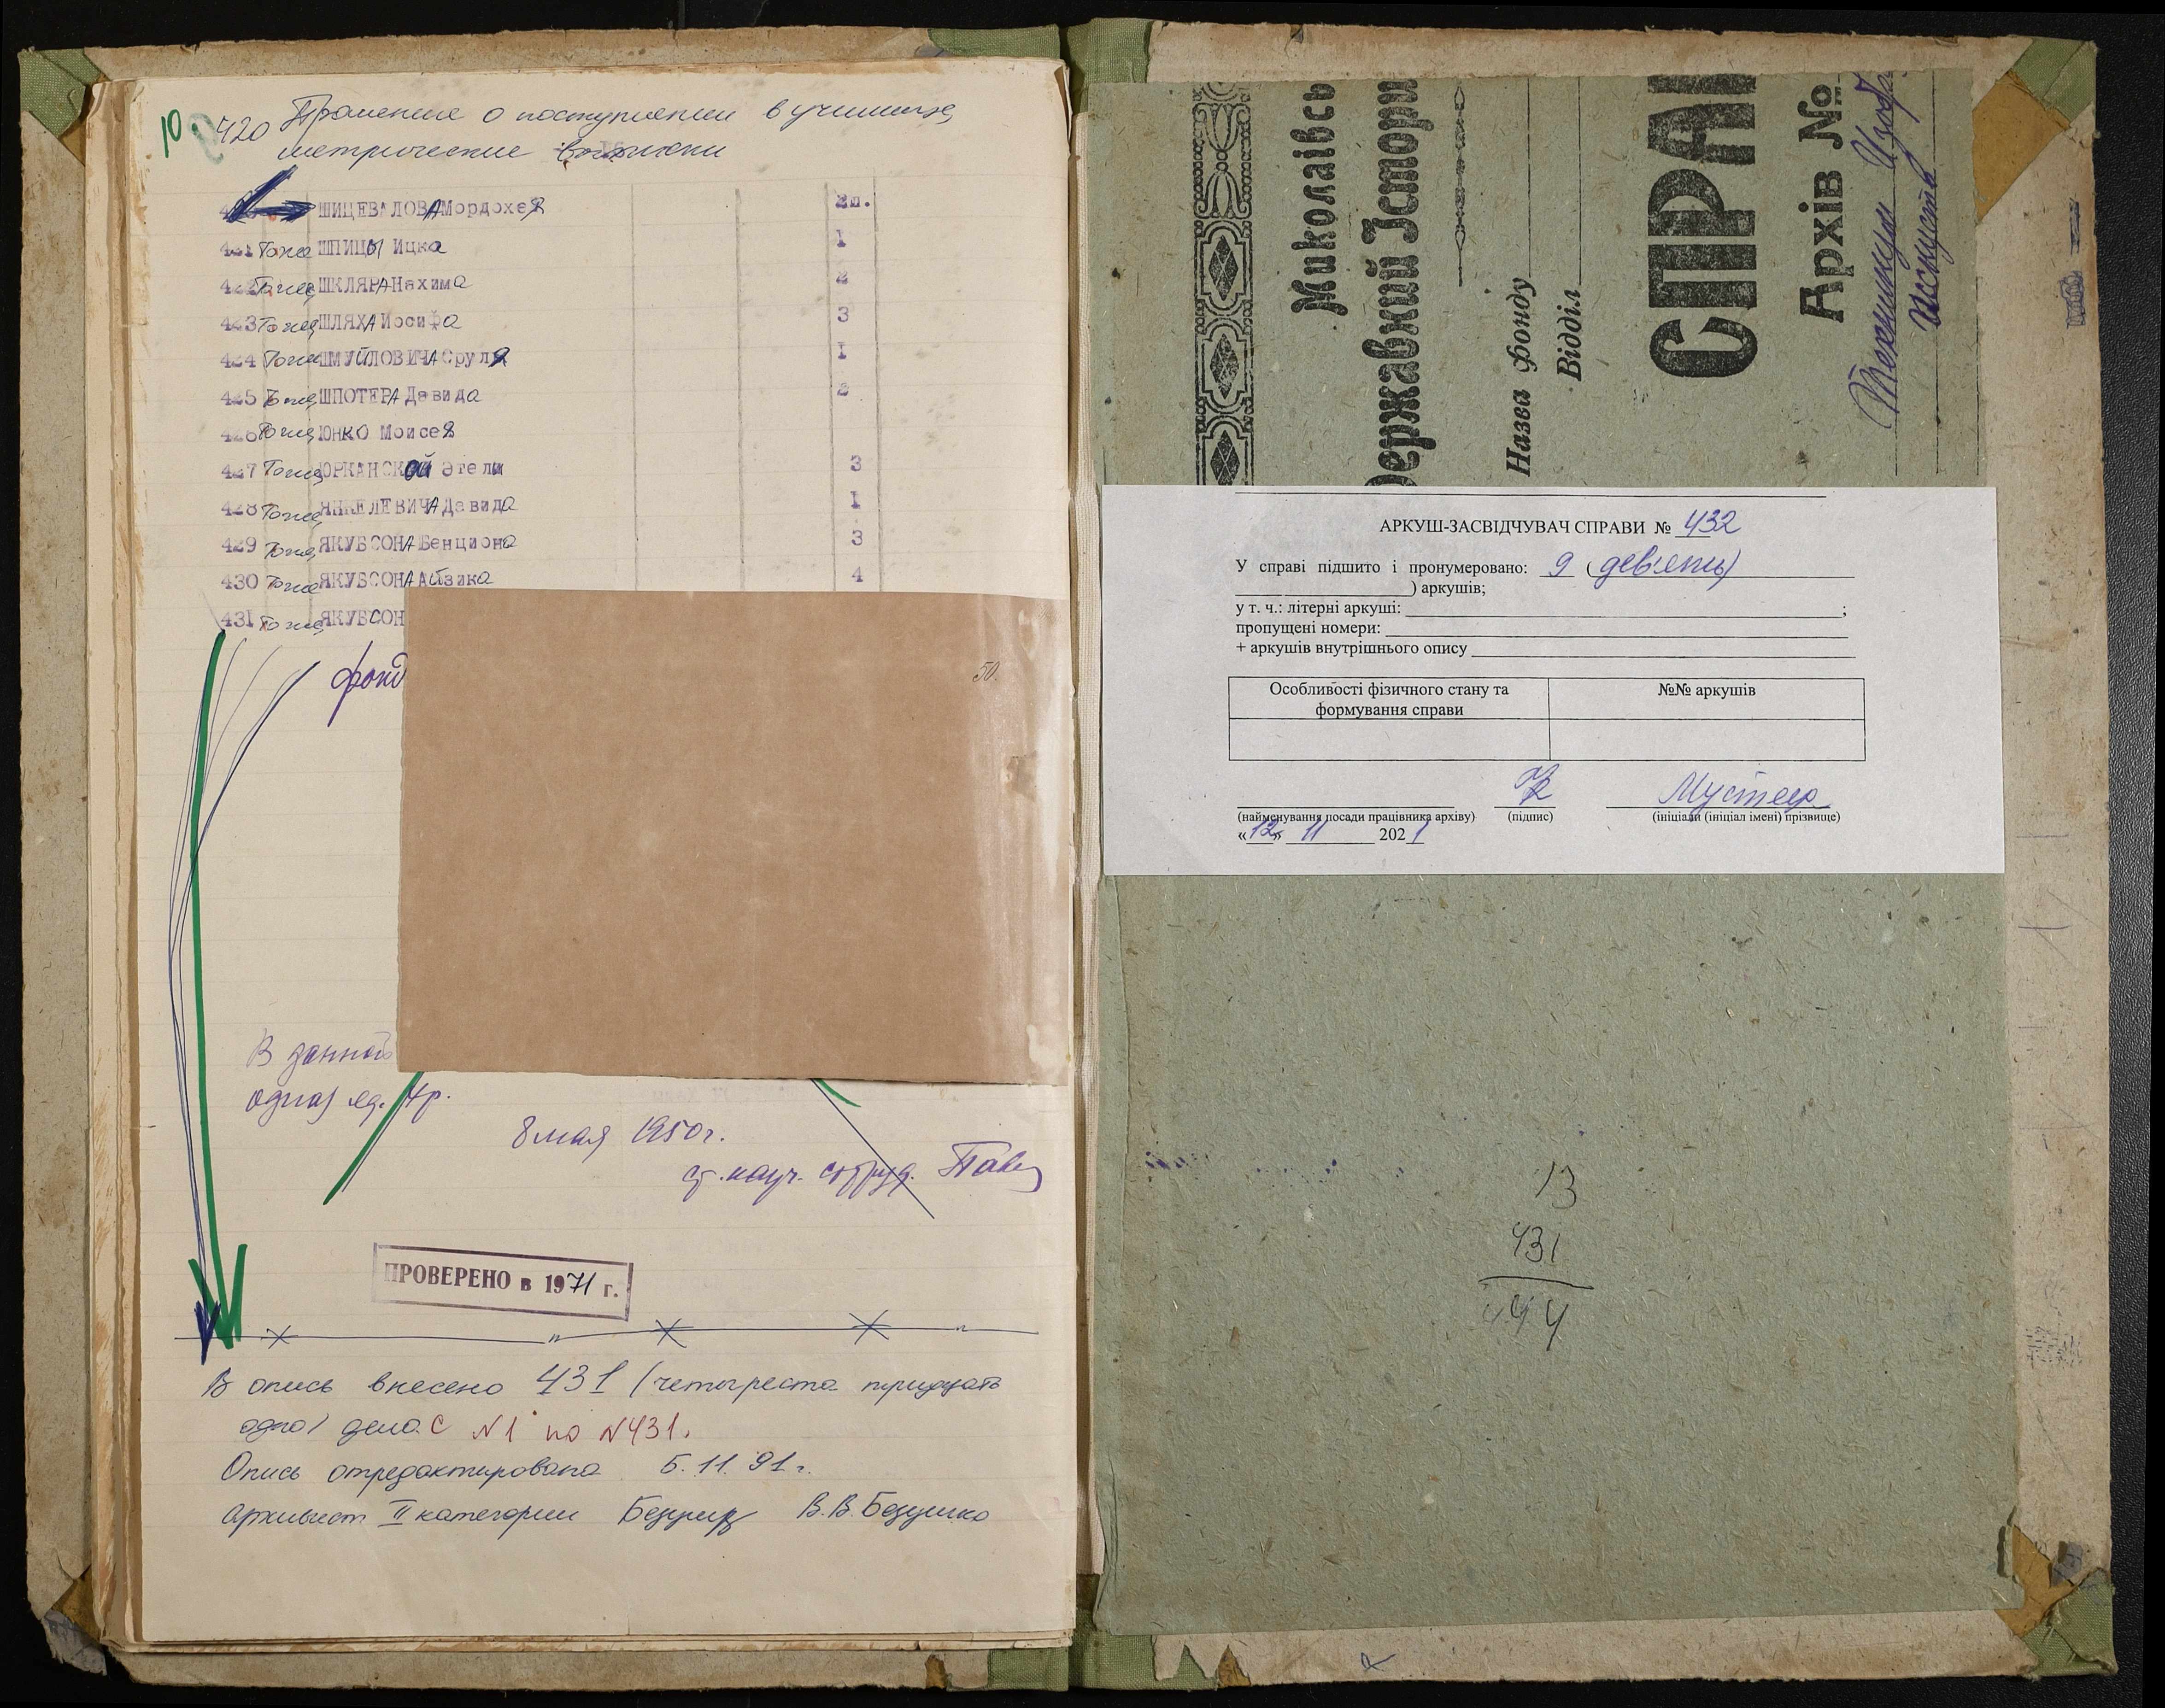 10
420 Прошение о поступлении в училище,
метрические выписки
ШИЦЕВАЛОВА Мордохея 2л.
421 То же ШПИЦЫ Ицка 1
422 То же ШКЛЯРА Нахима 2
423 То же ШЛЯХА Иосифа 3
424 То же ШМУЙЛОВИЧА Сруля 1
425 То же ШПОТЕРА Давида 2
426 То же ЮНКО Моисея
427 То же ЮРКАНСКОЙ Этели 3
428 То же ЯНКЕЛЕВИЧА Давида 1
429 То же ЯКУБСОНА Бенциона 3
430 То же ЯКУБСОНА Айзика 4
431 То же ЯКУБСОН
фонд
50.
В данной
одна) ед. хр.
8 мая 1950 г.
ст. науч. сотруд.
ПРОВЕРЕНО в 1971 г.
В опись внесено 431 (четыреста тридцать
одно) дело с N1 по N431.
Опись отредактирована 5.11.91 г.
Архивист II категории В.В. Безушко
Миколаївсь
Державний Істори
Назва фонду
Відділ
СПРА
Архів №
Техникум Изобр.
Искусств
АРКУШ-ЗАСВІДЧУВАЧ СПРАВИ № 432
У справі підшито і пронумеровано: 9 (дев'ять)
) аркушів;
у т. ч.: літерні аркуші: ;
пропущені номери:
+ аркушів внутрішнього опису
Особливості фізичного стану та формування справи №№ аркушів
(найменування посади працівника архіву) (підпис) (ініціали (ініціал імені) прізвище)
«12» 11 2021
13
431
444